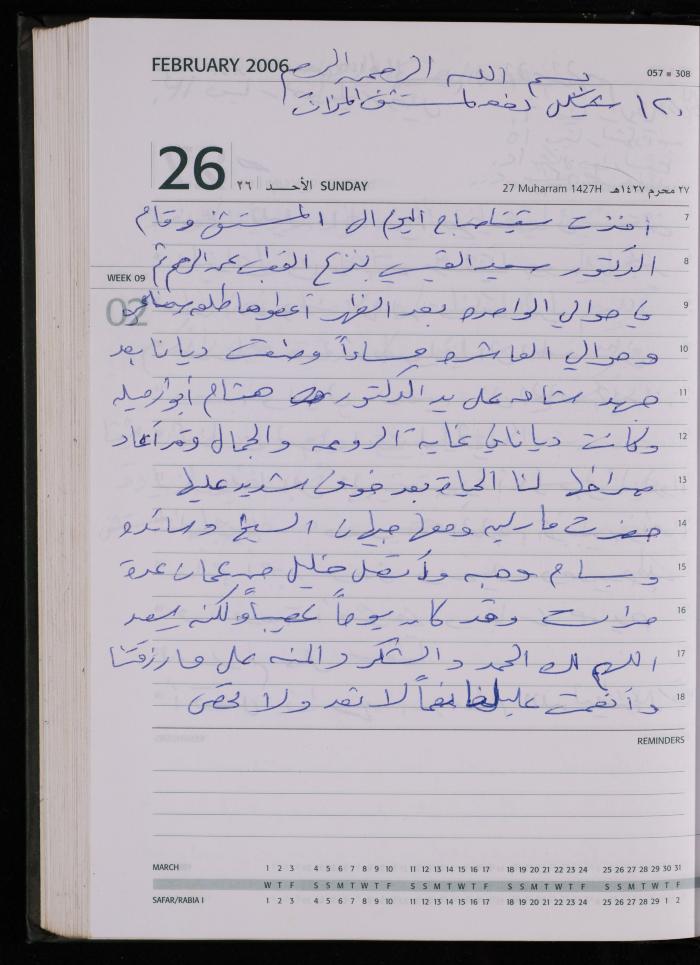 FEBRUARY 2006
بسم الله الرحمن الرحيم
057 308
١٢٠ دفع لمستشفى الميزات
26 ٢٦ الأحد SUNDAY 27 Muharram 1427H ٢٧ محرم ١٤٢٧هـ
7 أخذت صباح اليوم الى المستشفى وقام
8 الدكتور سعيد القيسي بنزع القطب عن الرحم ثم
WEEK 09
02
9 في حوالي الواحده بعد الظهر أعطوها طلق صناعي
10 وحوالي العاشره مساءاً وضعت ديانا بعد
11 جهد شاق على يد الدكتور هشام أبو زميله
12 وكانت ديانا في غاية الروعه والجمال وقد أعاد
13 صراخها لنا الحياة بعد خوف شديد عليها
14 حضرت مارلين ومعها جيهان الشيخ وسائده
15 وبسام وهبه واتصل خليل من عمان عدة
16 مرات وقد كان يوماً عصيباً ولكنه سعيد
17 اللهم لك الحمد والشكر والمنه على ما رزقتنا
18 وأنعمت علينا نعماً لا تعد ولا تحصى
REMINDERS
MARCH 1 2 3 4 5 6 7 8 9 10 11 12 13 14 15 16 17 18 19 20 21 22 23 24 25 26 27 28 29 30 31
W T F S S M T W T F S S M T W T F S S M T W T F S S M T W T F
SAFAR/RABIA I 1 2 3 4 5 6 7 8 9 10 11 12 13 14 15 16 17 18 19 20 21 22 23 24 25 26 27 28 29 1 2